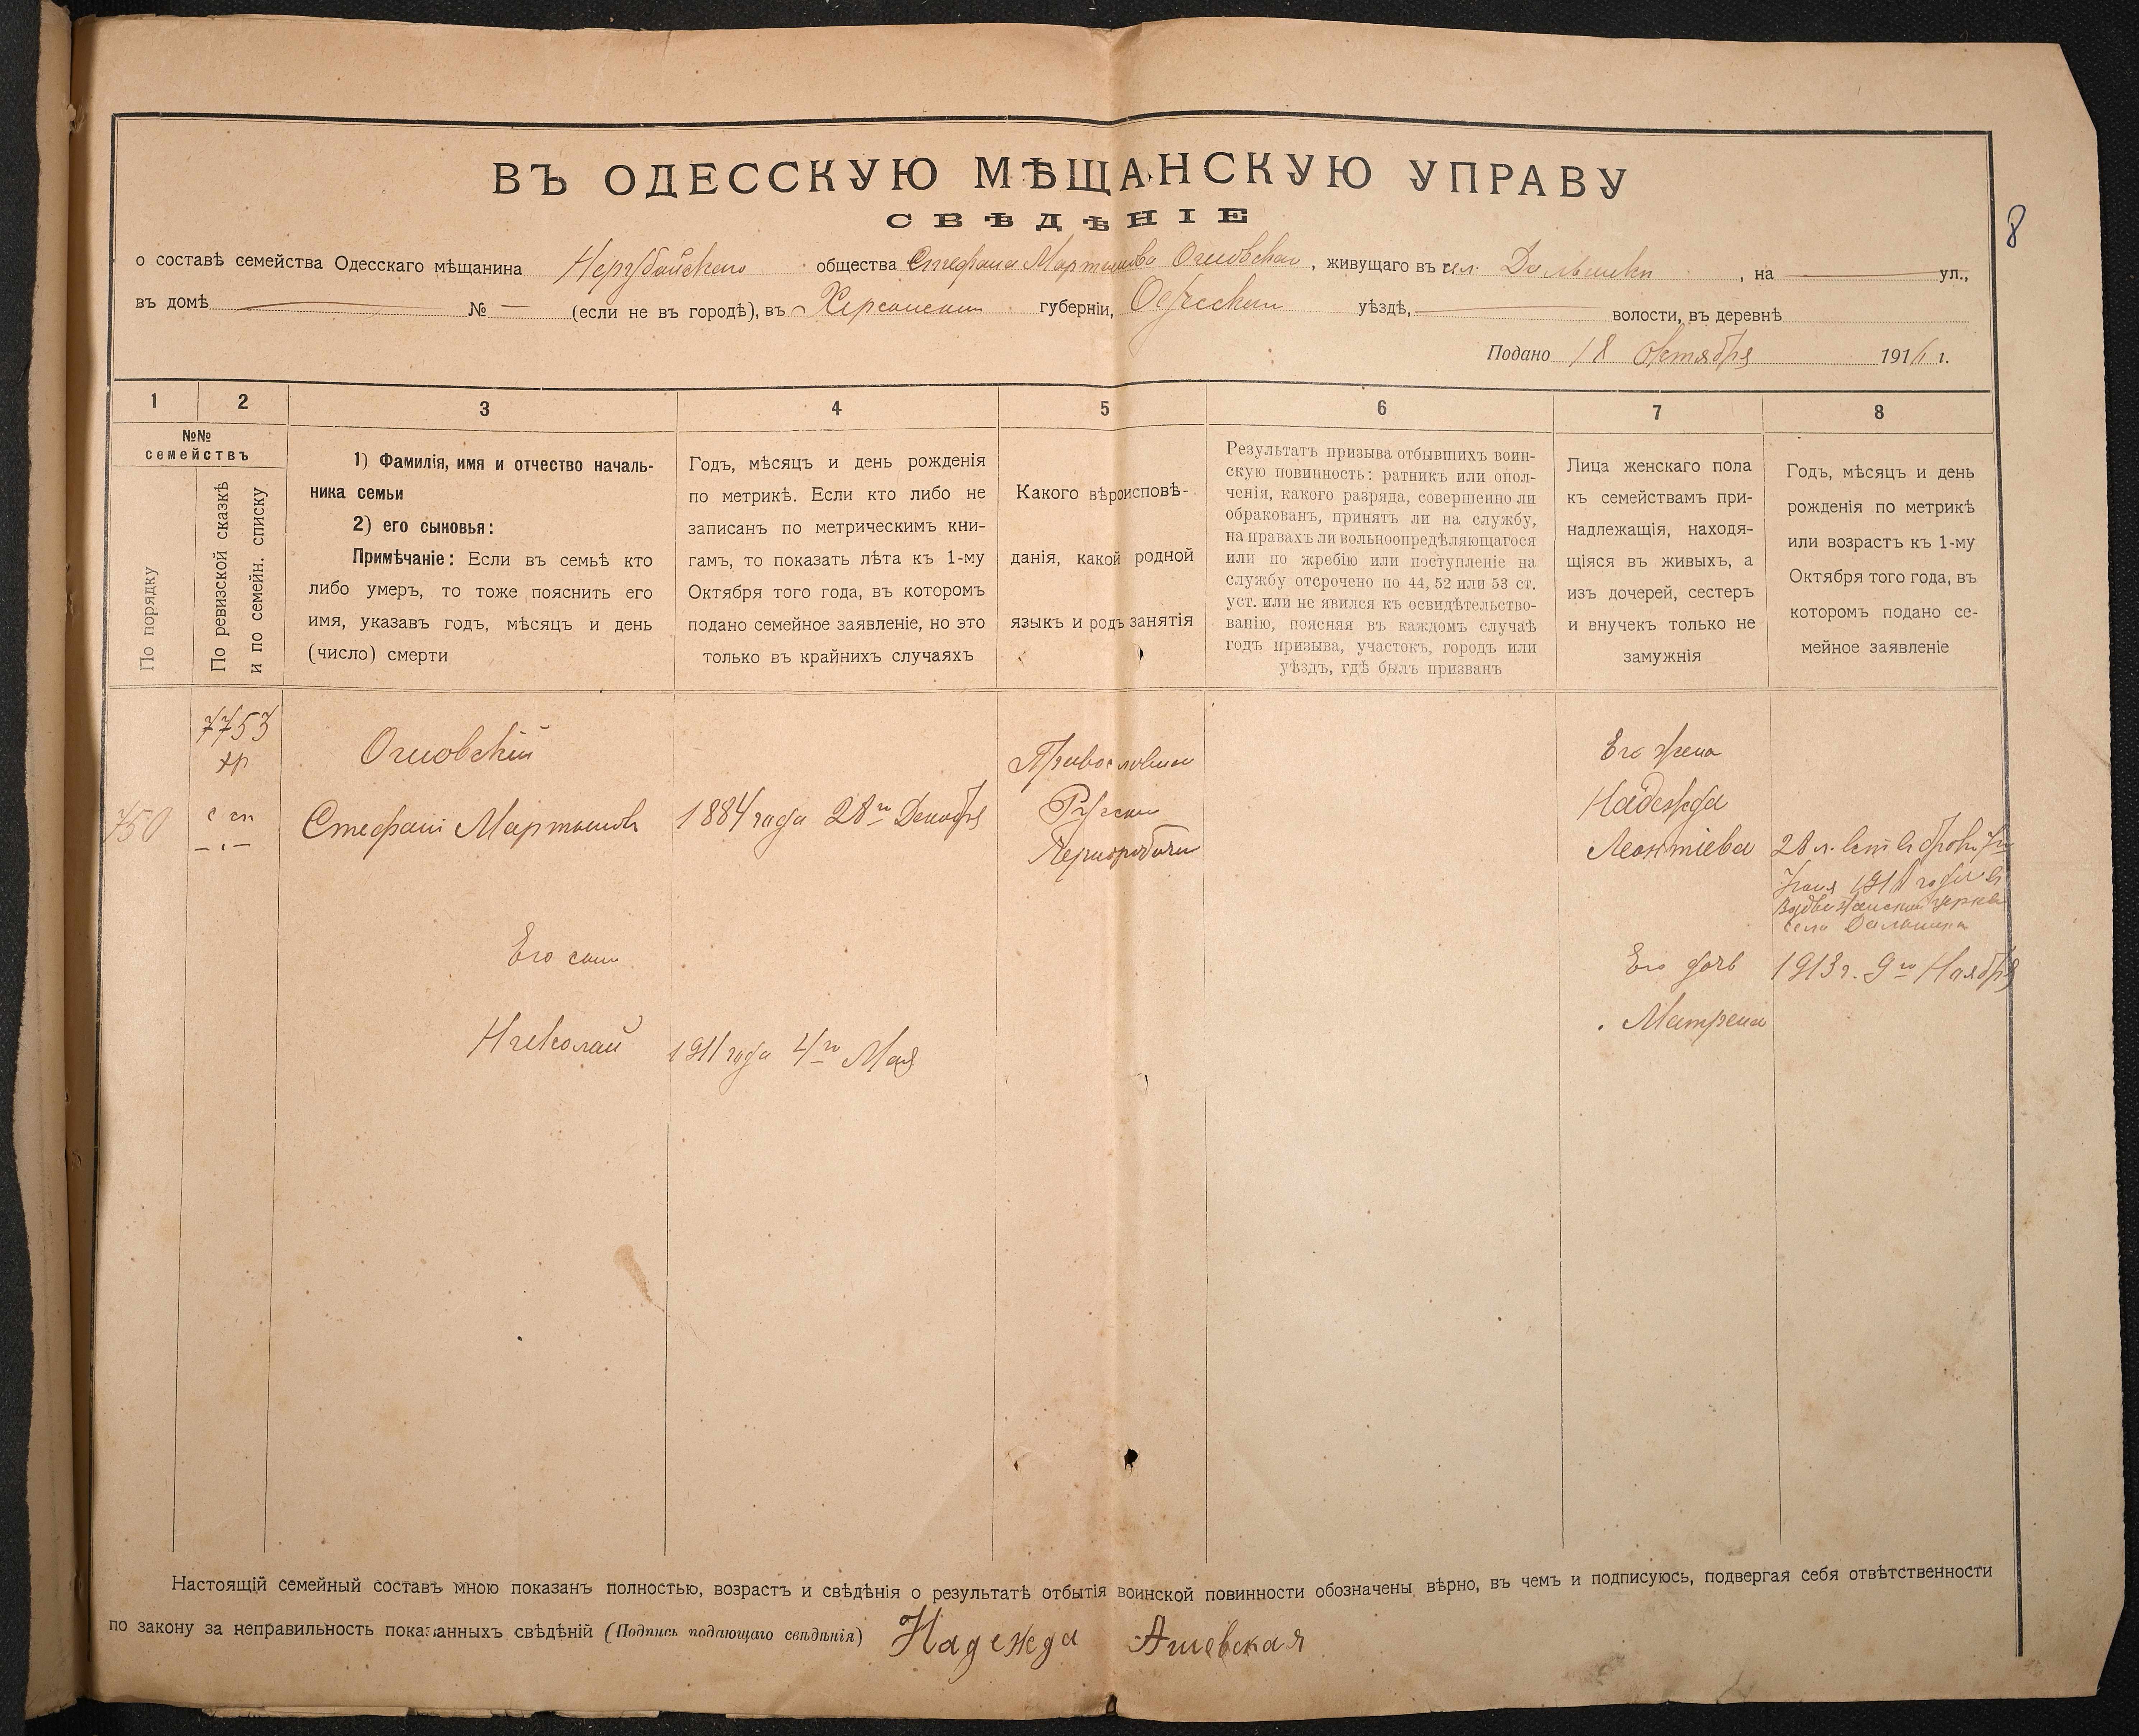 8
ВЪ ОДЕССКУЮ МѢЩАНСКУЮ УПРАВУ
СВѢДѢНІЕ
о составѣ семейства Одесскаго мѣщанина Нерубайскаго общества Стефана Мартынова , живущаго въ сел. Дальники , на ул.,
въ домѣ № — (если не въ городѣ), въ Херсонской губерніи, Одесскаго уѣздѣ, волости, въ деревнѣ
Подано 18 Октября 191 г.
1 2 3 4 5 6 7 8
№№
семействъ
По порядку
По ревизской сказкѣ
и по семейн. списку
1) Фамилія, имя и отчество началь-
ника семьи
2) его сыновья:
Примѣчаніе: Если въ семьѣ кто
либо умеръ, то тоже пояснить его
имя, указавъ годъ, мѣсяцъ и день
(число) смерти
Годъ, мѣсяцъ и день рожденія
по метрикѣ. Если кто либо не
записанъ по метрическимъ кни-
гамъ, то показать лѣта къ 1-му
Октября того года, въ которомъ
подано семейное заявленіе, но это
только въ крайнихъ случаяхъ
Какого вѣроисповѣ-
данія, какой родной
языкъ и родъ занятія
Результатъ призыва отбывшихъ воин-
скую повинность: ратникъ или опол-
ченія, какого разряда, совершенно ли
обракованъ, принятъ ли на службу,
на правахъ ли вольноопредѣляющагося
или по жребію или поступленіе на
службу отсрочено по 44, 52 или 53 ст.
уст. или не явился къ освидѣтельство-
ванію, поясняя въ каждомъ случаѣ
годъ призыва, участокъ, городъ или
уѣздъ, гдѣ былъ призванъ
Лица женскаго пола
къ семействамъ при-
надлежащія, находя-
щіяся въ живыхъ, а
изъ дочерей, сестеръ
и внучекъ только не
замужнія
Годъ, мѣсяцъ и день
рожденія по метрикѣ
или возрастъ къ 1-му
Октября того года, въ
которомъ подано се-
мейное заявленіе
7753
750
Стефанъ Мартыновъ
1884 года 28го Декабря
Православной
Русский
Чернорабочий
Его жена
Надежда
Леонтіева
28 л.
Воздвиженской церкви
села Дальника
Его сын
Николай
1911 года 4го Мая
Его дочь
Матрена
1913 г. 9го Ноября
Настоящій семейный составъ мною показанъ полностью, возрастъ и свѣдѣнія о результатѣ отбытія воинской повинности обозначены вѣрно, въ чемъ и подписуюсь, подвергая себя отвѣтственности
по закону за неправильность показанныхъ свѣдѣній (Подпись подающаго свѣдѣнія) Надежда